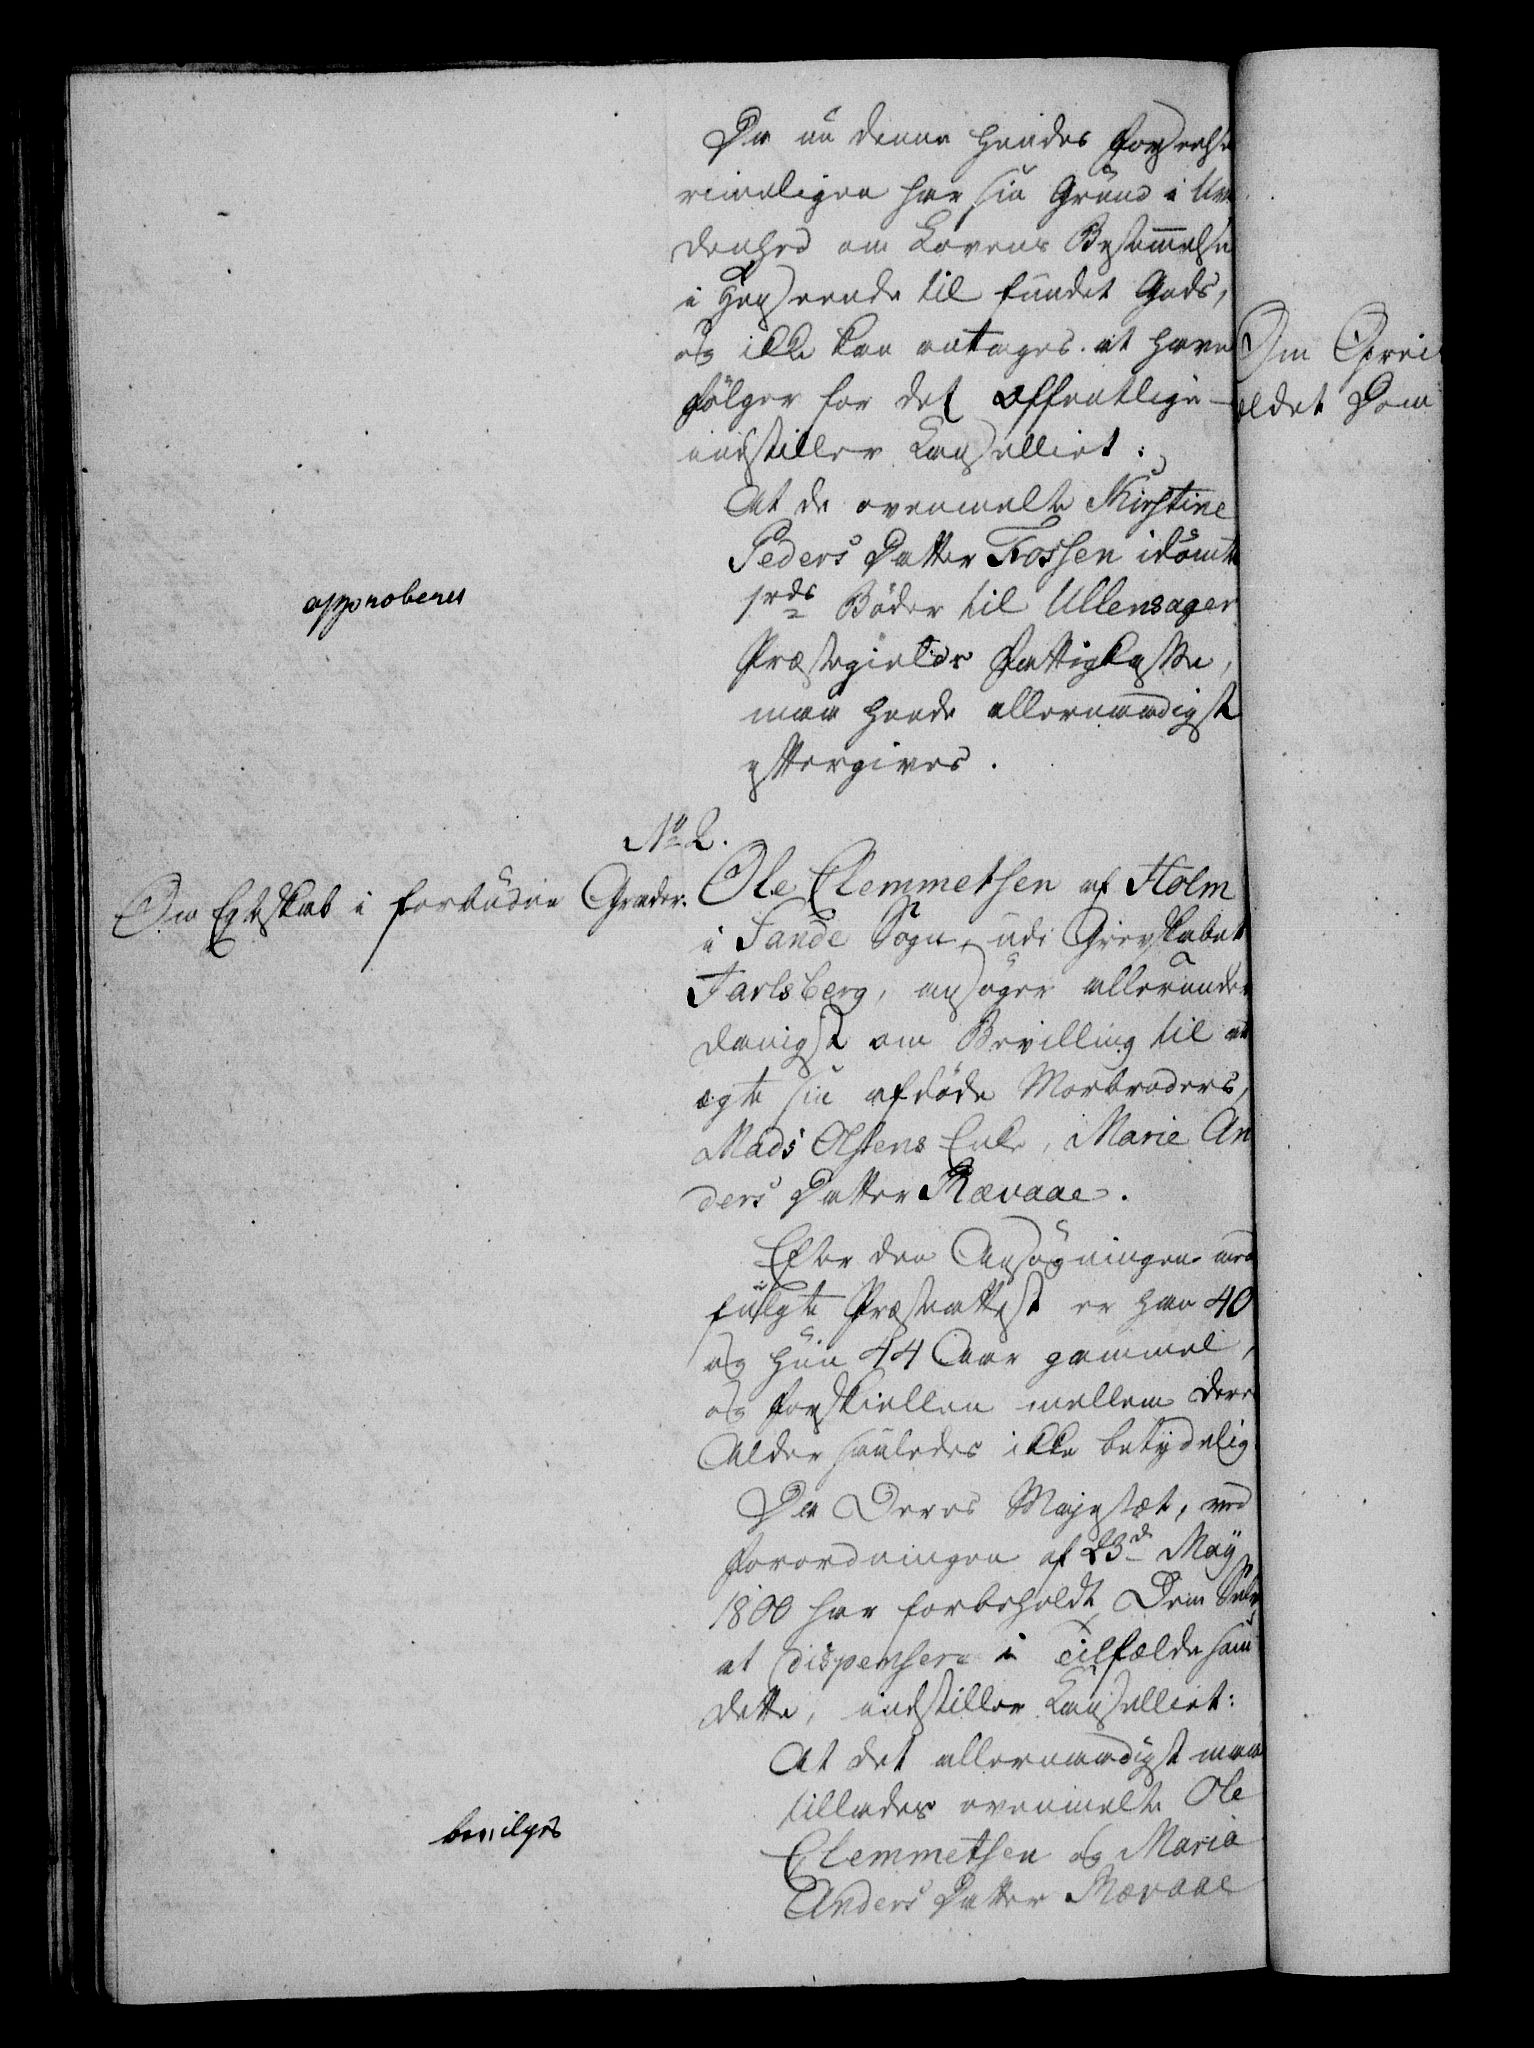 Da nu denne hendes Forseelse
rimeligen har sin Grund i Uvi
denhed om Lovens Bestemmelse
i Henseende til fundet Gods,
og ikke kan antages at have
Følger for det offentlige —
indstiller Cancelliet:
At de ovenmelte Kirstine
Peders Datter Fossen idømte
1 rds Bøder til Ullensager
Præstegields Fattigkasse,
maa hende allernaadigst
eftergives.
approberes
No 2.
Om Egteskab i forbudne Grader.
Ole Clemmetsen af Holm
i Sande Sogn, udi Grevskabet
Jarlsberg, ansøger allerunder
danigst om Bevilling til at
ægte sin afdøde Morbroders,
Mads Olsens Enke, Marie An
ders Datter Rævaae.
Efter den Ansøgningen med
fulgte Præsteattest er han 40
og hun 44 Aar gammel,
og Forskiellen mellem deres
Alder saaledes ikke betydelig.
Da Deres Majestæt, ved
Forordningen af 23d May
1800 har forbeholdt Dem Selv,
at dispensere i Tilfælde som
dette, indstiller Cancelliet:
At det allernaadigst maa
tillades ovenmelte Ole
Clemmetsen og Maria
Anders Datter Rævaae
bevilges
Om Oprei
eldet Dom